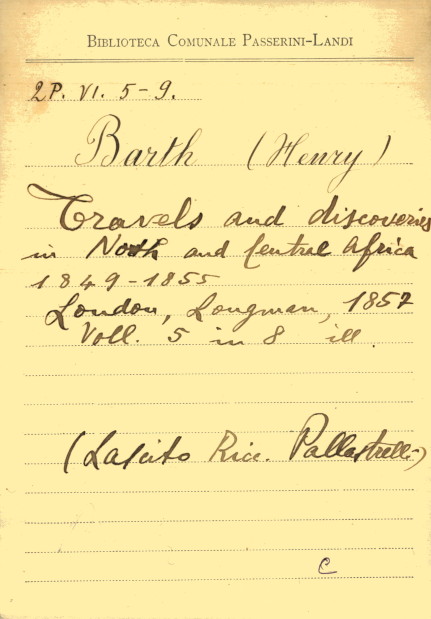 BIBLIOTECA COMUNALE PASSERINI-LANDI
2P. VI. 5-9.
Barth (Henry)
Travels and discoveries
in North and Central Africa
1849-1855
London, Longman, 1857
Voll. 5 in 8 ill.
(Lascito Ricc. Pallastrelli)
C